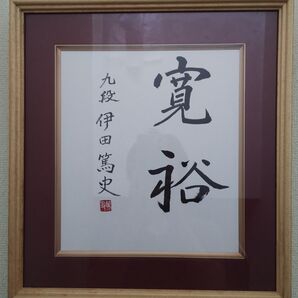 寛裕
九段 伊田篤史